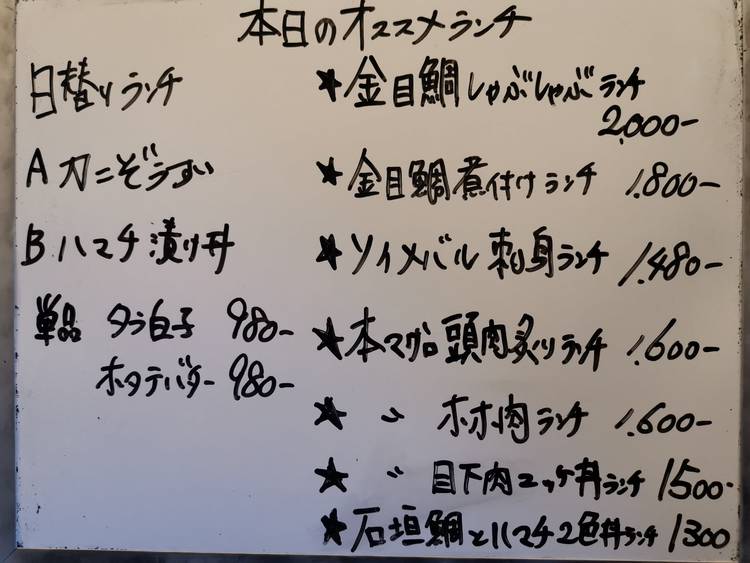 本日のオススメランチ
日替りランチ
A カニぞうすい
B ハマチ漬け丼
単品 タラ白子 980-
ホタテバター 980-
★金目鯛しゃぶしゃぶランチ
2,000-
★金目鯛煮付けランチ 1,800-
★ソイメバル刺身ランチ 1,480-
★本マグロ頭肉炙りランチ 1,600-
★ 〃 ホホ肉ランチ 1,600-
★ 〃 目下肉ユッケ丼ランチ 1500-
★石垣鯛とハマチ2色丼ランチ 1300